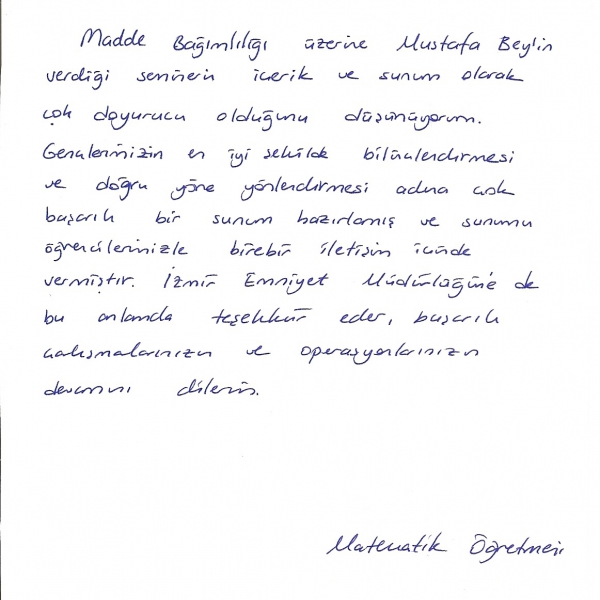 Madde Bağımlılığı üzerine Mustafa Bey'in
verdiği seminerin içerik ve sunum olarak
çok doyurucu olduğunu düşünüyorum.
Gençlerimizin en iyi şekilde bilinçlendirmesi
ve doğru yöne yönlendirmesi adına çok
başarılı bir sunum hazırlamış ve sunumu
öğrencilerimizle birebir iletişim içinde
vermiştir. İzmir Emniyet Müdürlüğüne de
bu anlamda teşekkür eder, başarılı
çalışmalarınızın ve operasyonlarınızın
devamını dilerim.
Matematik Öğretmeni